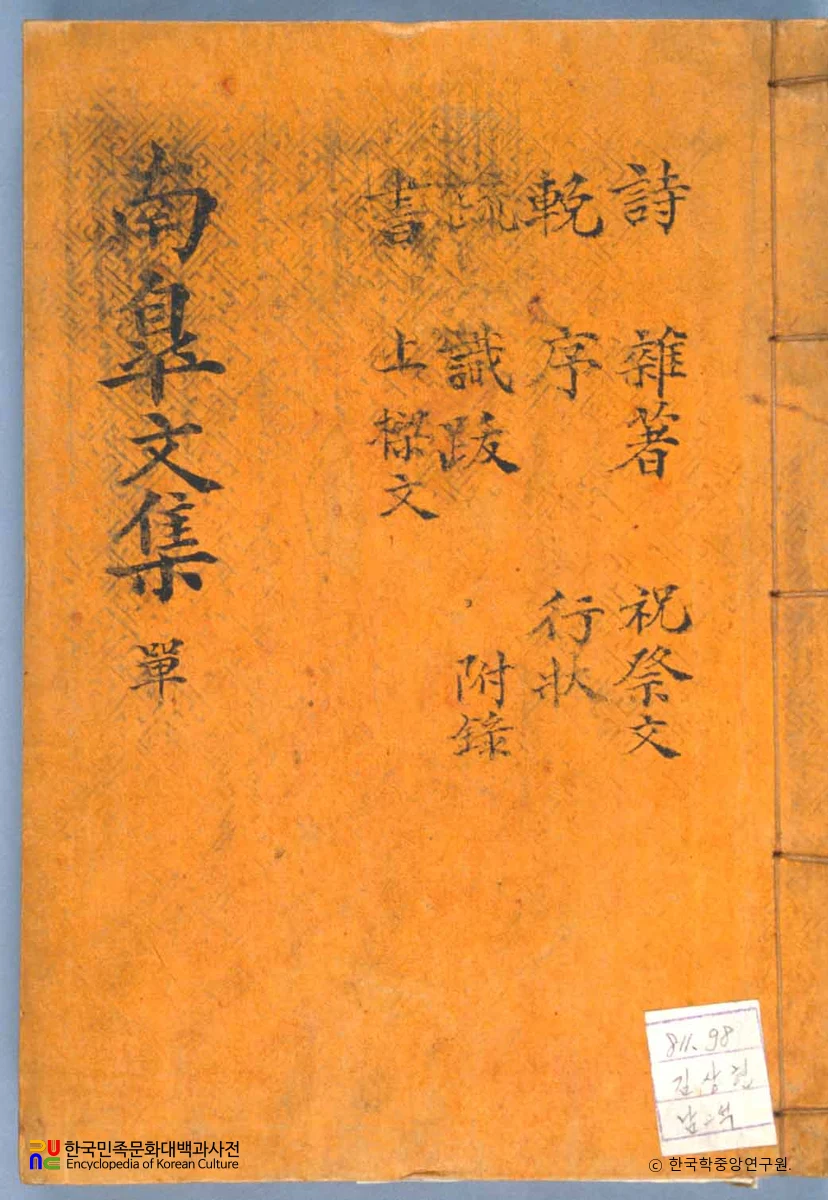 詩 雜著 祝祭文
輓 序 行狀
疏 識跋 附錄
書 上樑文
南皐文集 單
811.98
한국민족문화대백과사전
Encyclopedia of Korean Culture
© 한국학중앙연구원.